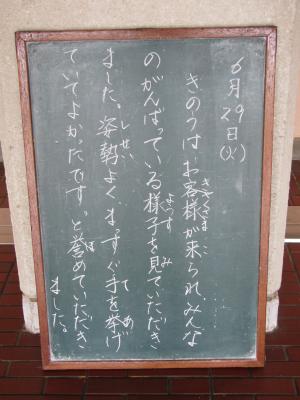 6月29日(火)
きのうはお客様が来られ、みんな
のがんばっている様子を見ていただき
ました。姿勢よく、まっすぐ手を挙げ
ていてよかったです。と誉めていただき
ました。